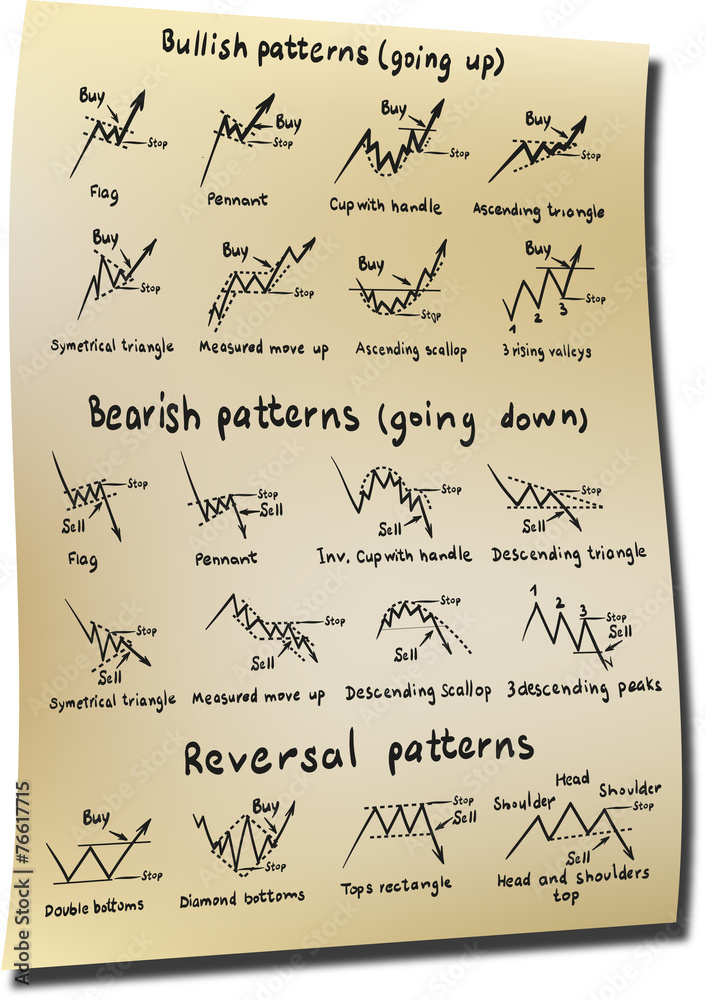 Bullish patterns (going up)
Buy
Stop
Flag
Buy
Stop
Pennant
Buy
Stop
Cup with handle
Buy
Stop
Ascending triangle
Buy
Stop
Symetrical triangle
Buy
Stop
Measured move up
Buy
Stop
Ascending scallop
Buy
Stop
1 2 3
3 rising valleys
Bearish patterns (going down)
Stop
Sell
Flag
Stop
Sell
Pennant
Stop
Sell
Inv. Cup with handle
Stop
Sell
Descending triangle
Stop
Sell
Symetrical triangle
Stop
Sell
Measured move up
Stop
Sell
Descending Scallop
1 2 3
Stop
Sell
3 descending peaks
Reversal patterns
Buy
Stop
Double bottoms
Buy
Stop
Diamond bottoms
Stop
Sell
Tops rectangle
Shoulder Head Shoulder
Stop
Sell
Head and shoulders
top
Adobe Stock | #76617715
Adobe Stock